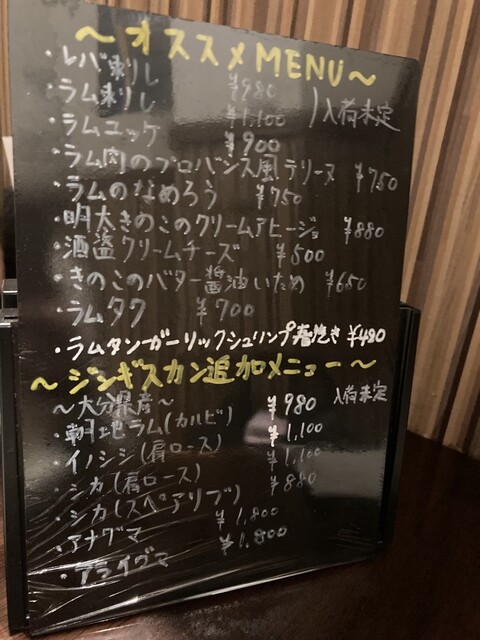 ～オススメMENU～
・レバ刺し ¥980
・ラム刺し ¥1,100 )入荷未定
・ラムユッケ ¥900
・ラム肉のプロバンス風テリーヌ ¥750
・ラムのなめろう ¥750
・明太きのこのクリームアヒージョ ¥880
・酒盗クリームチーズ ¥500
・きのこのバター醤油いため ¥650
・ラムタク ¥700
・ラムタンガーリックシュリンプ春巻き ¥480
～ジンギスカン追加メニュー～
～大分県産～ 入荷未定
・朝地ラム(カルビ) ¥980
・イノシシ(肩ロース) ¥1,100
・シカ(肩ロース) ¥1,100
・シカ(スペアリブ) ¥880
・アナグマ ¥1,800
・アライグマ ¥1,800